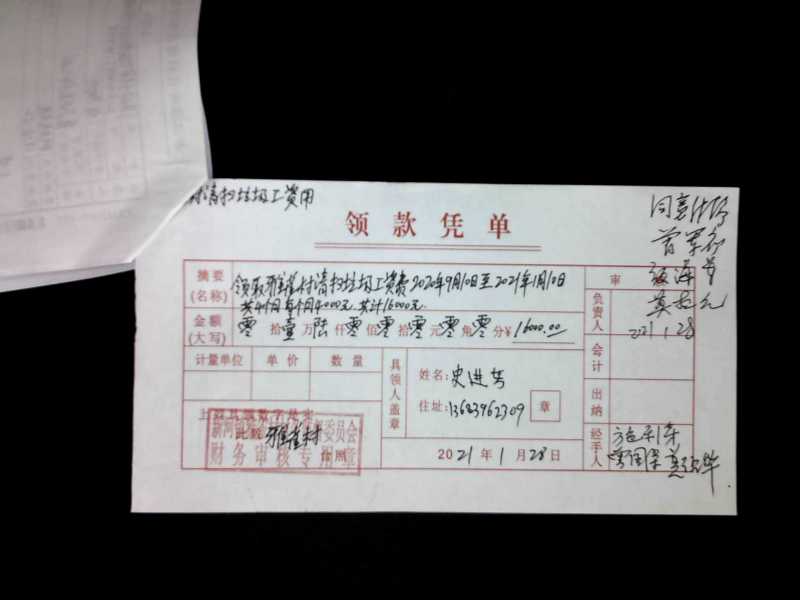 村清扫垃圾工资用
领款凭单
同意付
2021.1.28
摘要
(名称)
领取雅雀村清扫垃圾工资费2020年9月10日至2021年1月10日
共4个月每个月4000元.共计16000元.
审
金额
(大写)
零拾壹万陆仟零佰零拾零元零角零分¥16000.00
负责人
计量单位 单价 数量
会计
具领人盖章
姓名:史进芳
住址:13683962309
章
出纳
上列具领数字是实
此致 雅雀村 台照
财务审核专用章
2021年1月28日
经手人